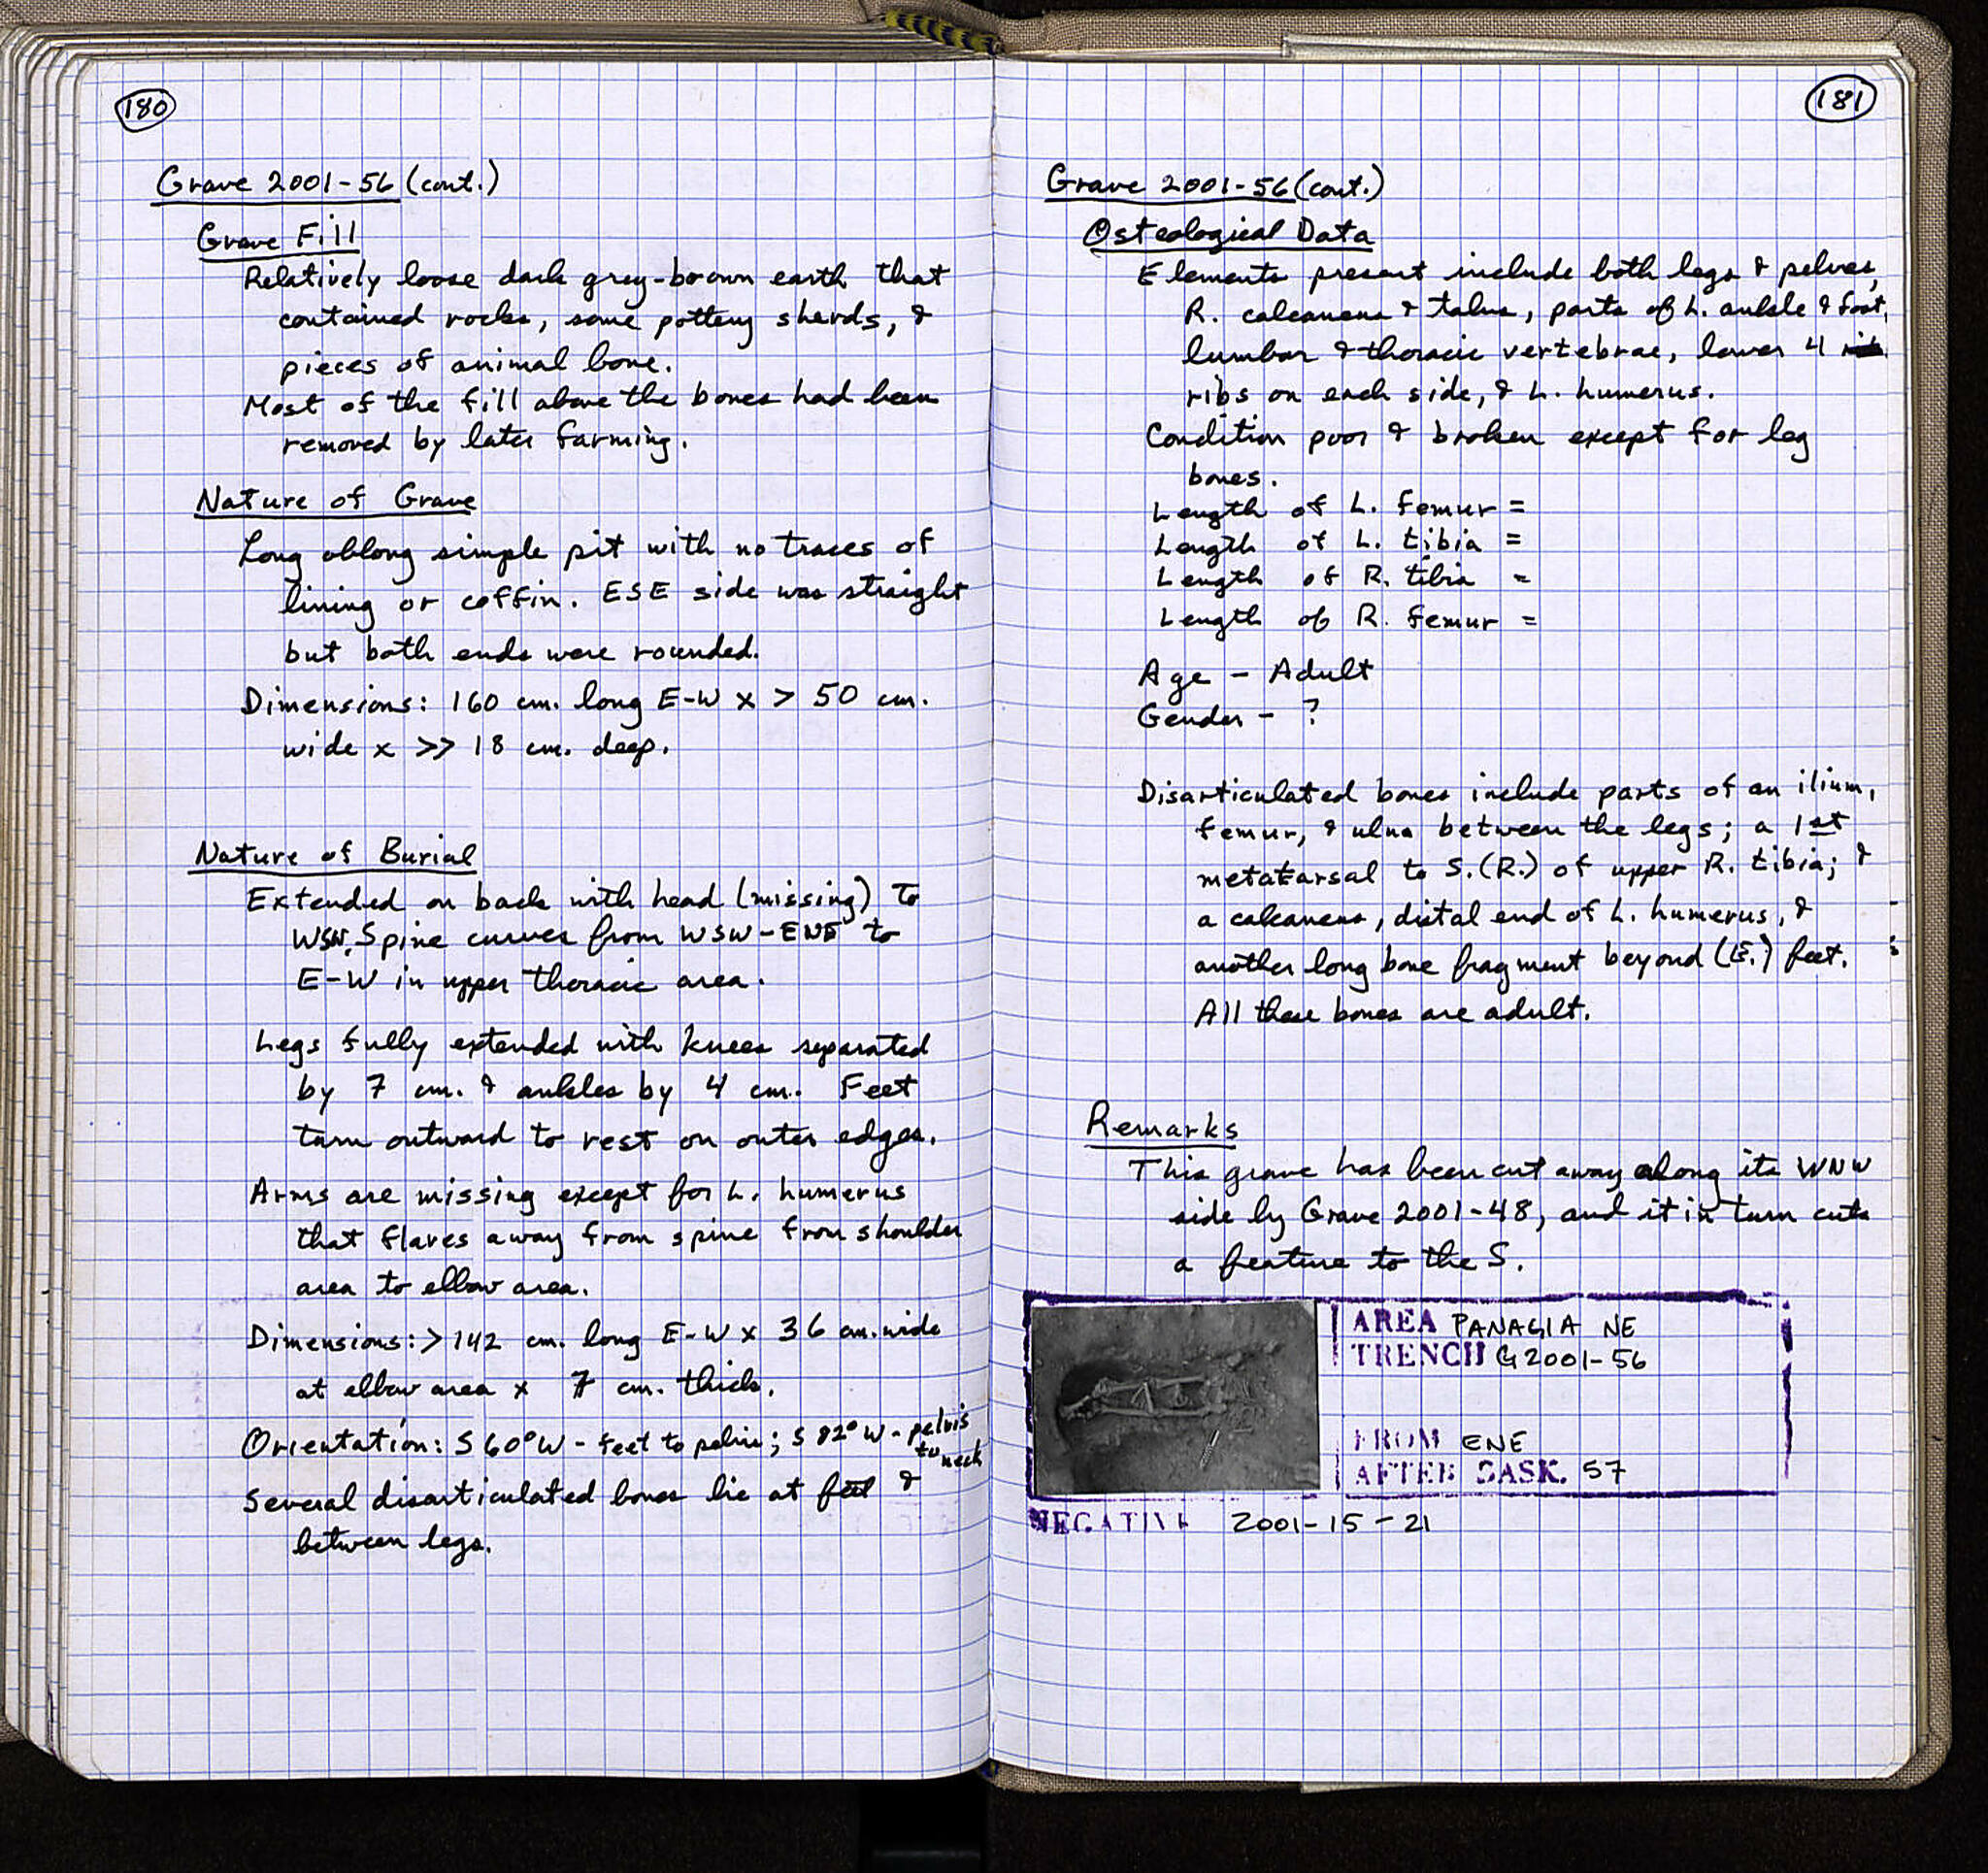 180
Grave 2001-56 (cont.)
Grave Fill
Relatively loose dark grey-brown earth that
contained rocks, some pottery sherds, &
pieces of animal bone.
Most of the fill above the bones had been
removed by later farming.
Nature of Grave
Long oblong simple pit with no traces of
lining or coffin. ESE side was straight
but both ends were rounded.
Dimensions: 160 cm. long E-W x > 50 cm.
wide x >> 18 cm. deep.
Nature of Burial
Extended on back with head (missing) to
WSW. Spine curves from WSW-ENE to
E-W in upper thoracic area.
Legs fully extended with knees separated
by 7 cm. & ankles by 4 cm. Feet
turn outward to rest on outer edges.
Arms are missing except for L. humerus
that flares away from spine from shoulder
area to elbow area.
Dimensions: > 142 cm. long E-W x 36 cm. wide
at elbow area x 7 cm. thick.
Orientation: S 60° W - feet to pelvis; S 82° W - pelvis
to neck
Several disarticulated bones lie at feet &
between legs.
181
Grave 2001-56 (cont.)
Osteological Data
Elements present include both legs & pelves,
R. calcaneus & talus, parts of L. ankle & foot,
lumbar & thoracic vertebrae, lower 4
ribs on each side, & L. humerus.
Condition poor & broken except for leg
bones.
Length of L. femur =
Length of L. tibia =
Length of R. tibia =
Length of R. femur =
Age - Adult
Gender - ?
Disarticulated bones include parts of an ilium,
femur, & ulna between the legs; a 1st
metatarsal to S. (R.) of upper R. tibia; &
a calcaneus, distal end of L. humerus, &
another long bone fragment beyond (E.) feet.
All these bones are adult.
Remarks
This grave has been cut away along its WNW
side by Grave 2001-48, and it in turn cuts
a feature to the S.
AREA PANAGIA NE
TRENCH G2001-56
FROM ENE
AFTER BASK. 57
NEGATIVE 2001-15-21